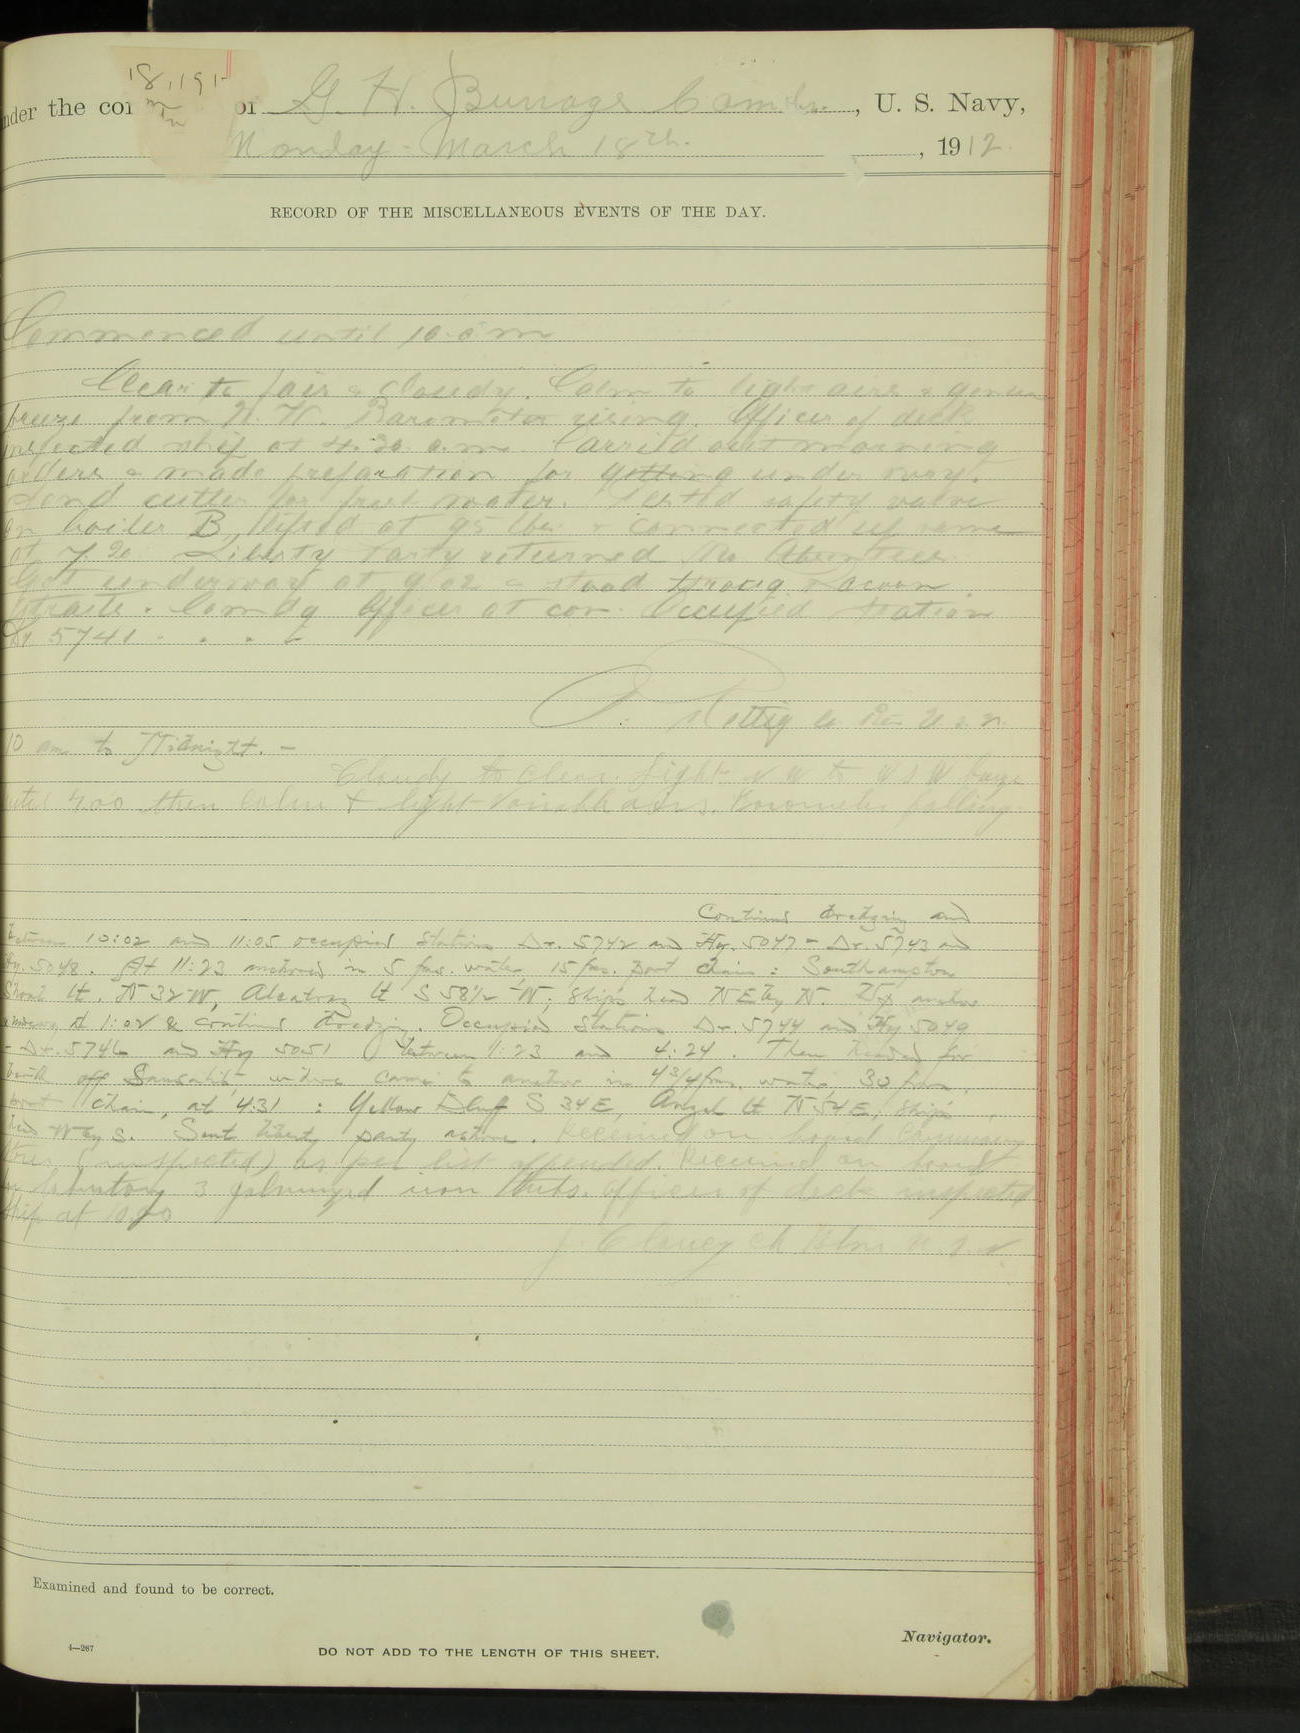 18, 191
nder the co of G. H. Burrage Comdr., U. S. Navy,
Monday - March 18th. , 1912.
RECORD OF THE MISCELLANEOUS EVENTS OF THE DAY.
Commenced until 10 a m
Clear to fair & cloudy. Calm to light airs &
breeze from N. W. Barometer rising. Officer of deck
inspected ship at 4:30 a.m. Carried out morning
orders & made preparation for getting under way.
Send cutter for fresh water. Tested safety valve
on boiler B, lifted at 95 lbs & connected up same
at 7.20 Liberty Party returned No Absentees
Got underway at 9 02 & stood through Racoon
Straits. Comdg Officer at con. Occupied Station
Dr 5741
Rettig U.S.N.
10 am to Midnight. -
Cloudy to clear. Light N W to W S W
until 4.00 then calm & light variable airs. Barometer falling.
Continued dredging and
between 10:02 and 11:05 occupied Stations Dr. 5742 and Hy. 5047 - Dr. 5743 and
Hy. 5048. At 11:23 anchored in 5 fms. water, 15 fms. port chain: Southampton
Shoal Lt. N 32 W, Alcatraz Lt S 58½ W; Ship's head N E by N. Up anchor
at 1:02 & continued dredging. Occupied Stations Dr. 5744 and Hy 5049
- Dr. 5746 and Hy 5051 between 1:23 and 4:24. Then headed for
berth off Sausalito where came to anchor in 4 3/4 fms. water 30 fms.
port chain, at 4:31: Yellow Bluff S 34 E, Angel Lt N 54 E, Ship's
head W by S. Sent liberty party ashore. Received on board
(inspected) as per list appended. Received on board
3 galvanized iron tubs. Officer of deck inspected
ship at 10
J. Clancy Ch Btsn U. S. N.
Examined and found to be correct.
Navigator.
4—267
DO NOT ADD TO THE LENGTH OF THIS SHEET.